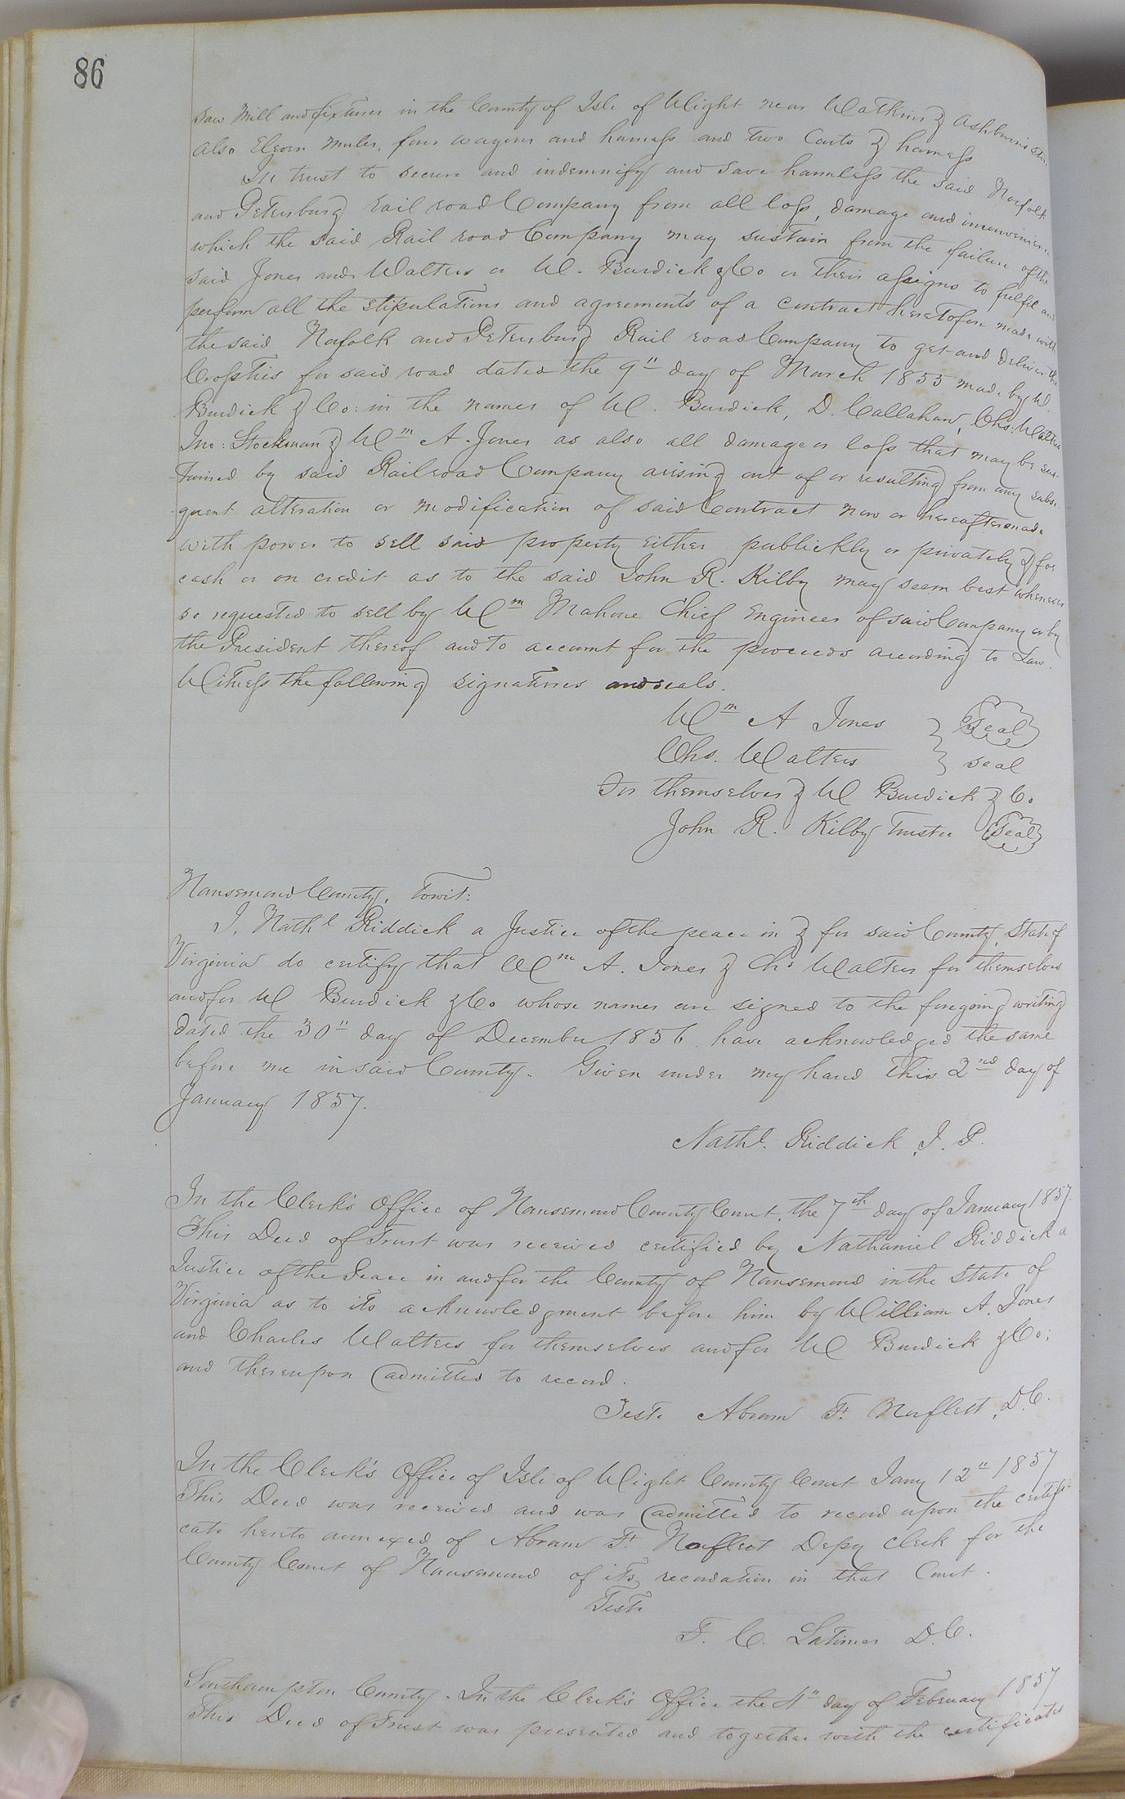 86
Saw Mill and fixtures in the County of Isle of Wight near Watkins & Ashburns
Also Eleven mules, four wagons and harness and two Carts & harness
In trust to secure and indemnify and save harmless the said Norfolk
and Petersburg Rail road Company from all loss, damage and inconvenience
which the said Rail road Company may sustain from the failure of the
said Jones and Walters or W. Burdick & Co or their assigns to fulfil and
perform all the stipulations and agreements of a contract heretofore made with
the said Norfolk and Petersburg Rail road Company to get and deliver the
Crossties for said road dated the 9" day of March 1855 made by W.
Burdick & Co: in the names of W. Burdick, D. Callahan, Chs. Walters
Jno. Stockman & Wm A. Jones as also all damage or loss that may be sus-
tained by said Railroad Company arising out of or resulting from any subse-
quent alteration or modification of said Contract now or hereafter made
with power to sell said property either publickly or privately & for
cash or on credit as to the said John R. Kilby may seem best whenever
so requested to sell by Wm Mahone Chief Engineer of said Company or by
the President thereof and to account for the proceeds according to Law.
Witness the following signatures and seals.
Wm A Jones } Seal
Chs. Walters } seal
For themselves & W Burdick & Co.
John R. Kilby Trustee Seal
Nansemond County, towit:
I, Nathl Riddick a Justice of the peace in & for said County, State of
Virginia do certify that Wm A. Jones & Chs Walters for themselves
and for W Burdick & Co whose names are signed to the foregoing writing
dated the 30" day of December 1856 have acknowledged the same
before me in said County. Given under my hand this 2nd day of
January 1857.
Nathl. Riddick, J. P.
In the Clerk's Office of Nansemond County Court, the 7th day of January 1857.
This Deed of Trust was received certified by Nathaniel Riddick a
Justice of the Peace in and for the County of Nansemond in the State of
Virginia as to its acknowledgment before him by William A. Jones
and Charles Walters for themselves and for W Burdick & Co:
and thereupon admitted to record.
Teste Abram F. Norfleet, D.C.
In the Clerk's Office of Isle of Wight County Court Jany 12" 1857
This Deed was received and was admitted to record upon the certifi-
cate hereto annexed of Abram F. Norfleet Depy clerk for the
County Court of Nansemond of its recordation in that Court.
Teste
F. C. Latimer D.C.
Southampton County. In the Clerk's Office the 4" day of February 1857
This Deed of Trust was presented and together with the certificates